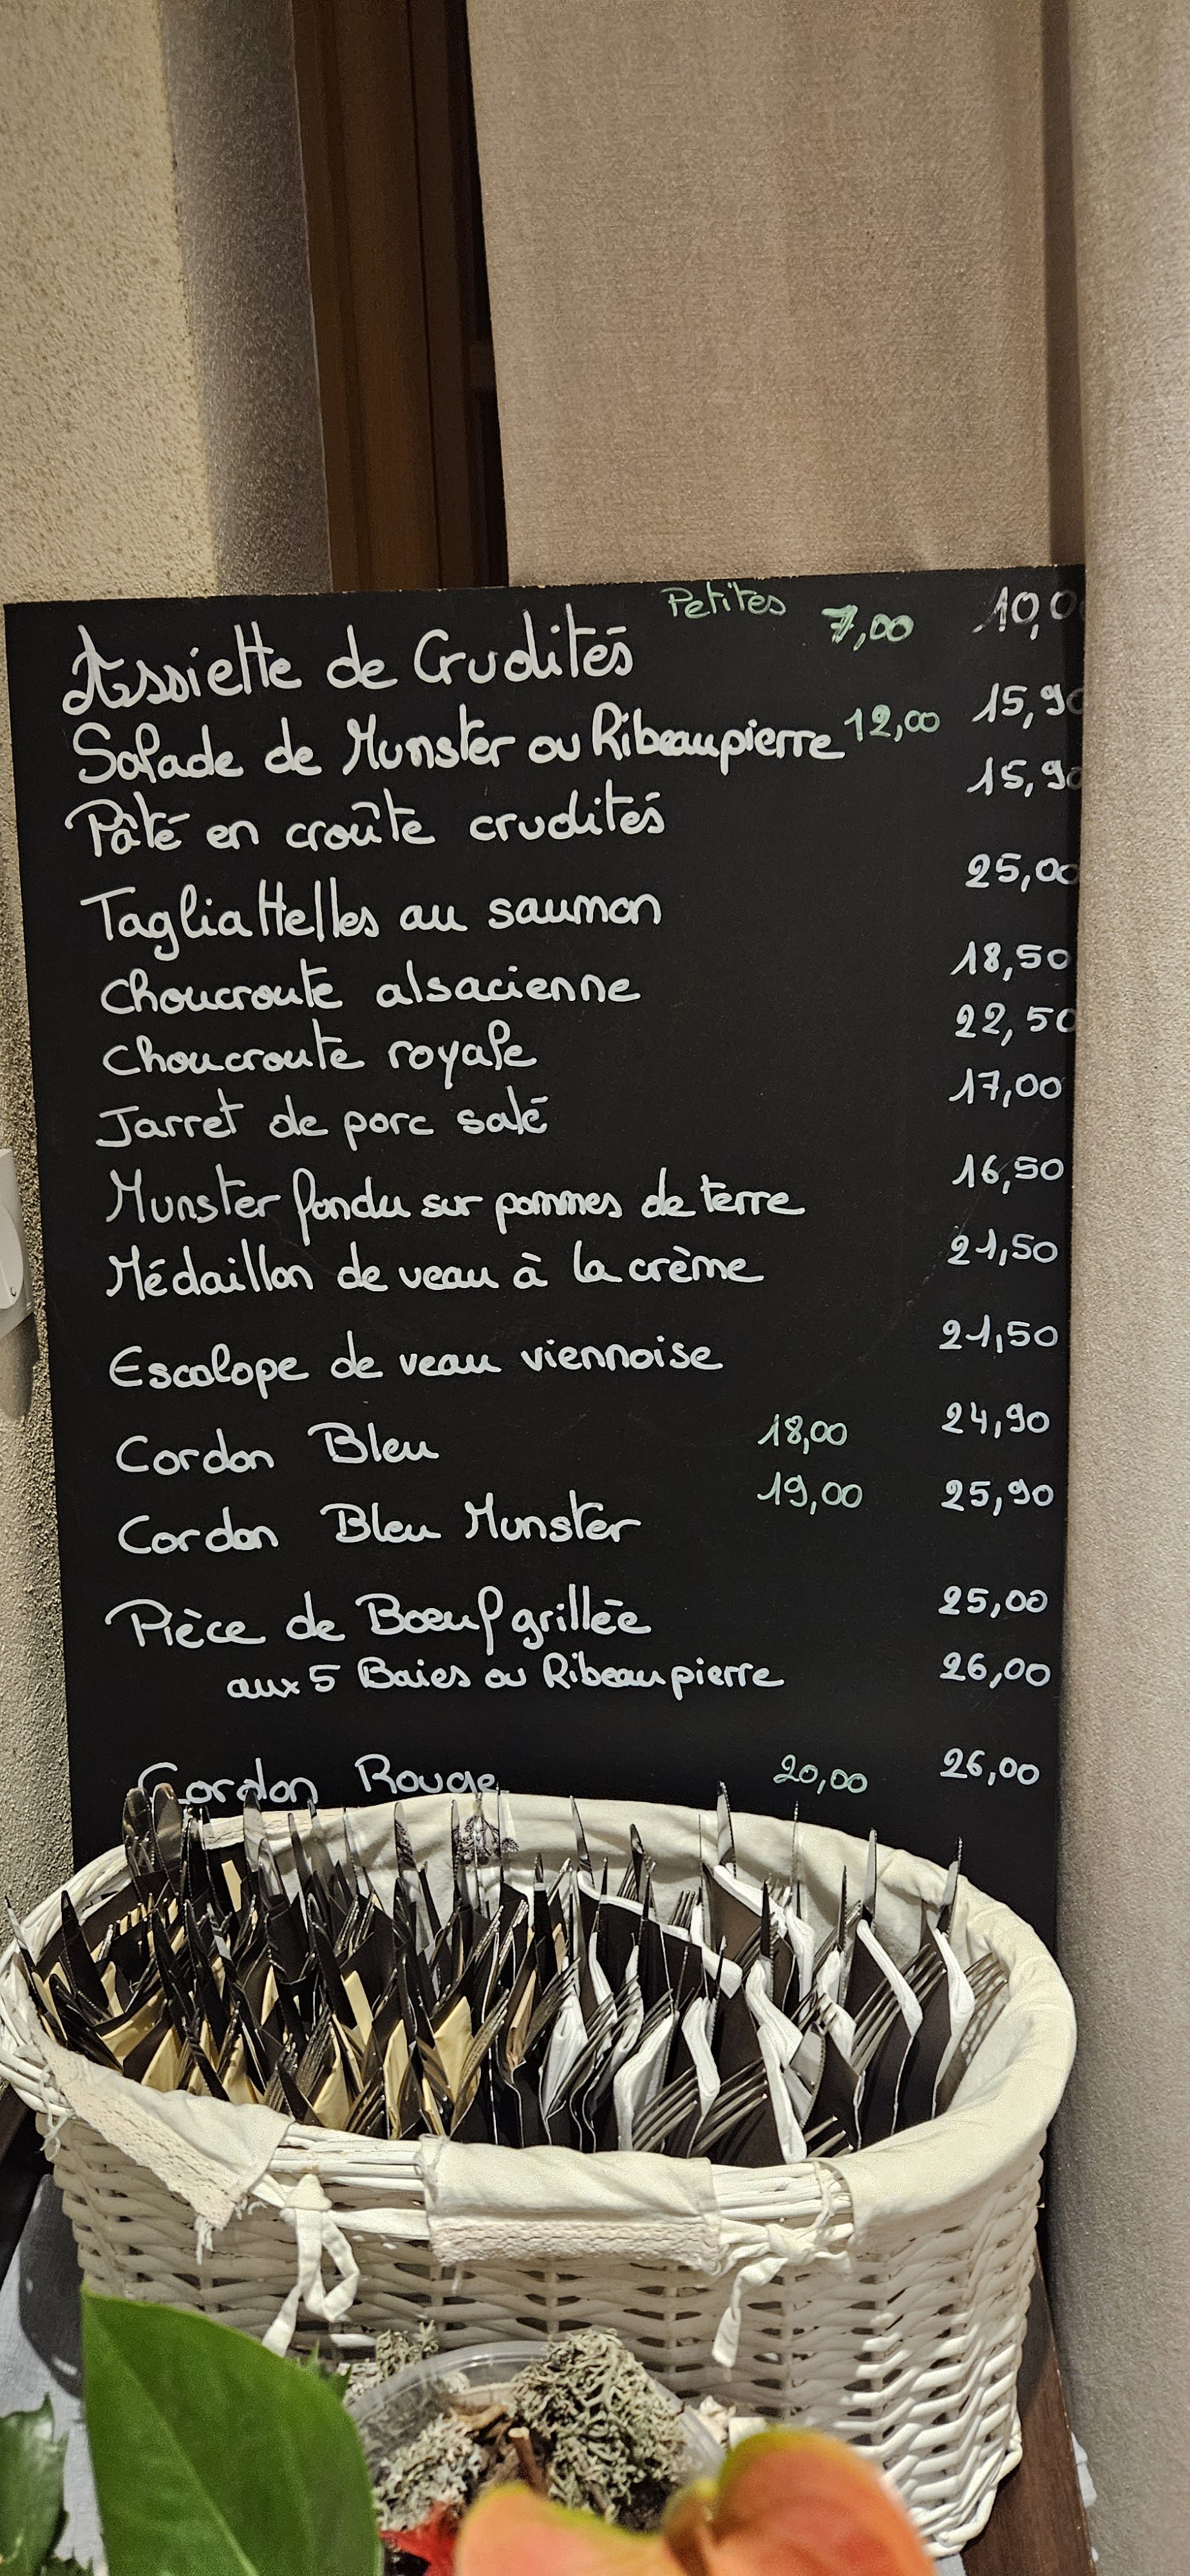 Petites
Assiette de Crudités 7,00 10,0
Salade de Munster ou Ribeaupierre 12,00 15,90
Pâté en croûte crudités 15,90
Tagliattelles au saumon 25,00
Choucroute alsacienne 18,50
Choucroute royale 22,50
Jarret de porc salé 17,00
Munster fondu sur pommes de terre 16,50
Médaillon de veau à la crème 21,50
Escalope de veau viennoise 21,50
Cordon Bleu 18,00 24,90
Cordon Bleu Munster 19,00 25,90
Pièce de Boeuf grillée 25,00
aux 5 Baies ou Ribeaupierre 26,00
Cordon Rouge 20,00 26,00